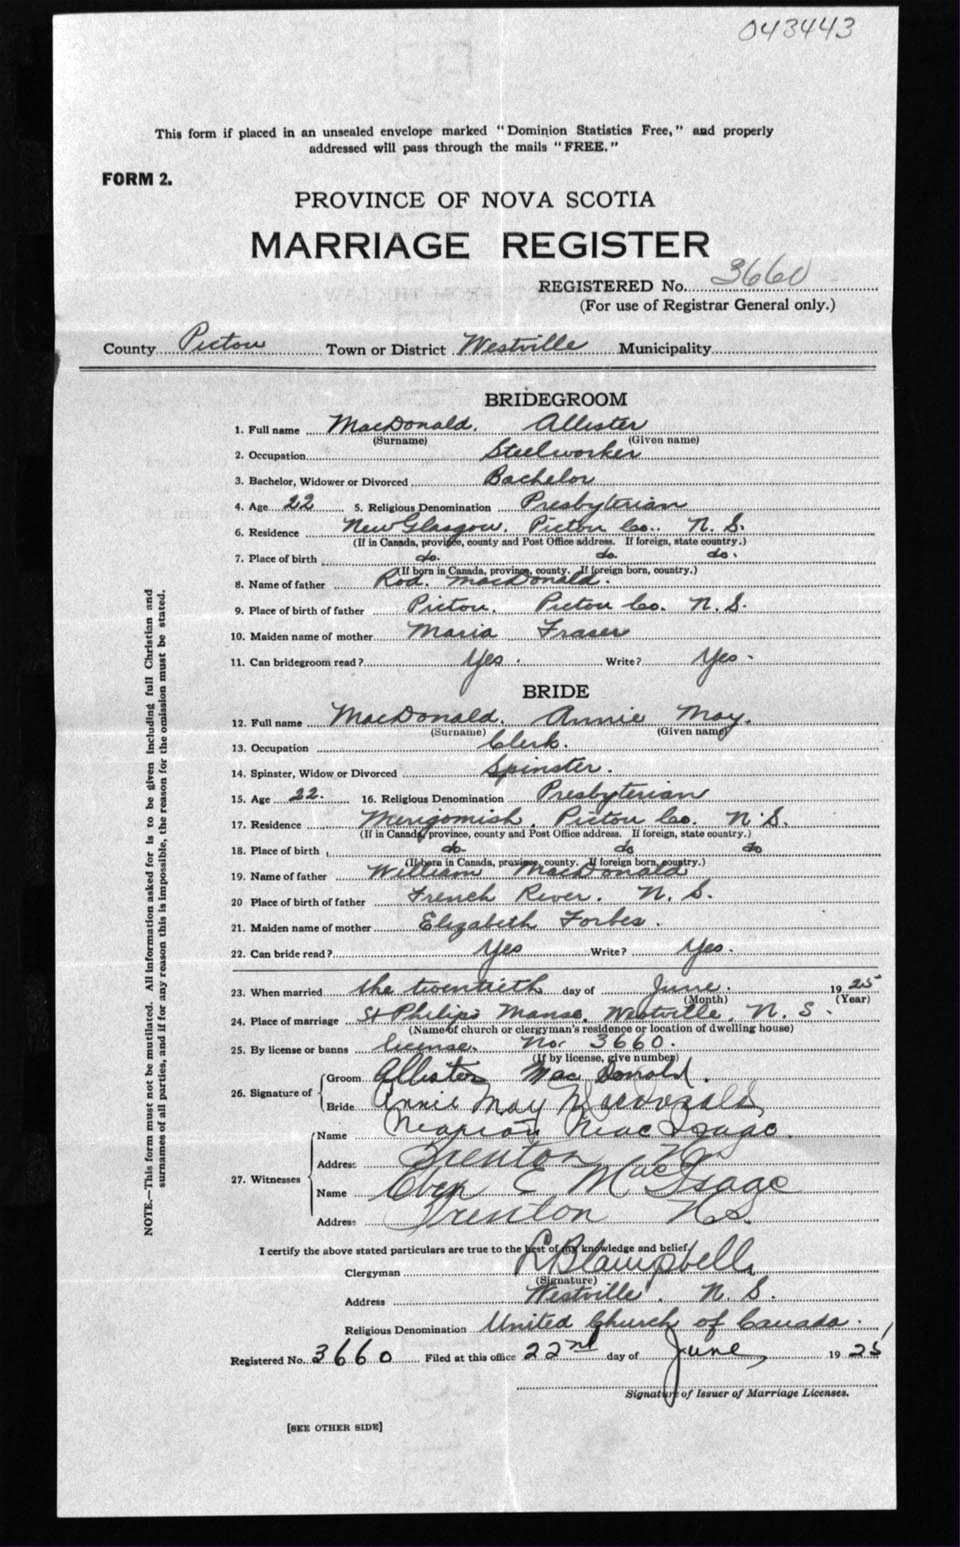 043443
This form if placed in an unsealed envelope marked "Dominion Statistics Free," and properly
addressed will pass through the mails "FREE."
FORM 2.
PROVINCE OF NOVA SCOTIA
MARRIAGE REGISTER
REGISTERED No. 3660
(For use of Registrar General only.)
County Pictou Town or District Westville Municipality
BRIDEGROOM
1. Full name MacDonald. Allister
(Surname) (Given name)
2. Occupation Steelworker
3. Bachelor, Widower or Divorced Bachelor
4. Age 22 5. Religious Denomination Presbyterian
6. Residence New Glasgow. Pictou Co. N. S.
(If in Canada, province, county and Post Office address. If foreign, state country.)
7. Place of birth do. do do.
(If born in Canada, province, county. If foreign born, country.)
8. Name of father Rod. MacDonald.
9. Place of birth of father Pictou. Pictou Co. N. S.
10. Maiden name of mother Maria Fraser
11. Can bridegroom read? Yes. Write? Yes.
BRIDE
12. Full name MacDonald. Annie May.
(Surname) (Given name)
13. Occupation Clerk.
14. Spinster, Widow or Divorced Spinster.
15. Age 22. 16. Religious Denomination Presbyterian
17. Residence Merigomish. Pictou Co. N. S.
(If in Canada, province, county and Post Office address. If foreign, state country.)
18. Place of birth do. do do
(If born in Canada, province, county. If foreign born, country.)
19. Name of father William MacDonald
20 Place of birth of father French River. N. S.
21. Maiden name of mother Elizabeth Forbes.
22. Can bride read? Yes Write? Yes.
23. When married the twentieth day of June. 1925
(Month) (Year)
24. Place of marriage St Philips Manse, Westville, N. S.
(Name of church or clergyman's residence or location of dwelling house)
25. By license or banns license. No. 3660.
(If by license, give number)
26. Signature of Groom Allister MacDonald.
Bride Annie May Macdonald
27. Witnesses
Name Marion MacIsaac.
Address Trenton NS
Name Eben E MacIsaac
Address Trenton N.S.
I certify the above stated particulars are true to the best of my knowledge and belief.
Clergyman Campbell.
(Signature)
Address Westville. N. S.
Religious Denomination United Church of Canada.
Registered No. 3660 Filed at this office 22nd day of June, 1925
Signature of Issuer of Marriage Licenses.
[SEE OTHER SIDE]
NOTE.—This form must not be mutilated. All information asked for is to be given including full Christian and
surnames of all parties, and if for any reason this is impossible, the reason for the omission must be stated.